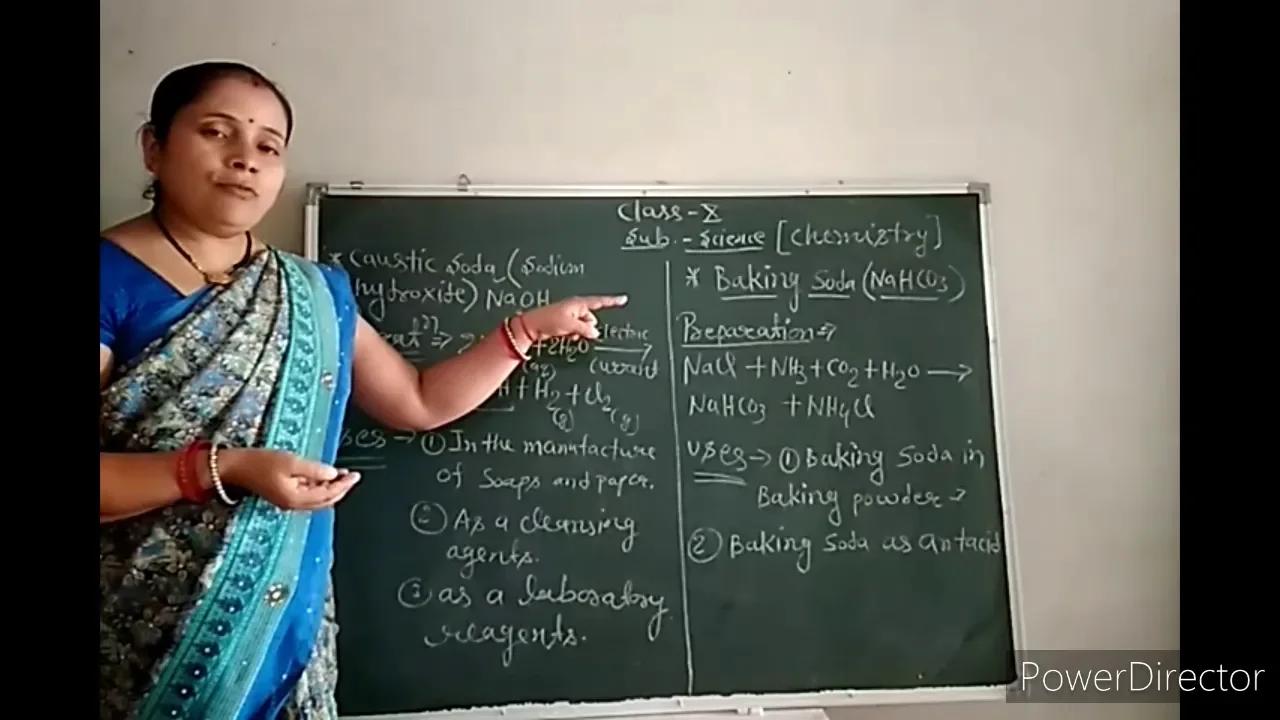 Class-X
Sub.-Science [Chemiztry]
* Caustic Soda (Sodium
hydroxide) NaOH
+2H₂O electric
(aq) current
+ H₂ + Cl₂
(g) (g)
uses → ① In the manufacture
of Soaps and paper.
② As a cleansing
agents.
③ as a laboratory
reagents.
* Baking Soda (NaHCO₃)
Preparation ⇒
NaCl + NH₃ + CO₂ + H₂O →
NaHCO₃ + NH₄Cl
Uses → ① Baking Soda in
Baking powder →
② Baking Soda as antacid
PowerDirector